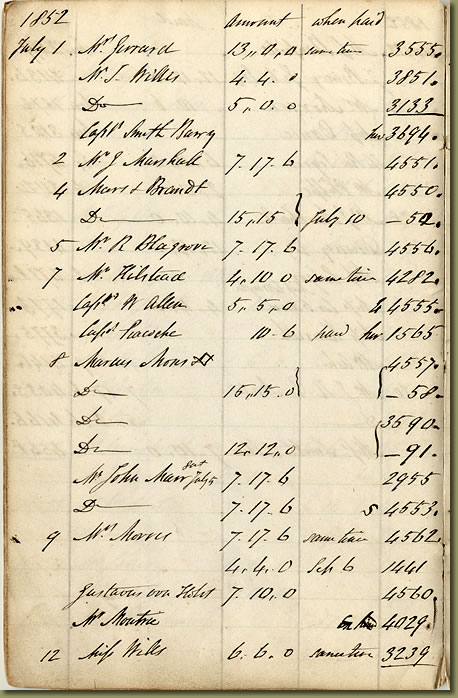 1852 amount when paid
July 1 Mr Jerrard 13,,0,,0 same time 3555.
Mr S. Willes 4. 4. 0 3851.
Do 5,, 0. 0 3133
Captn Smith Barry hire 3694.
2 Mr J Marshall 7. 17. 6 4551.
4 Mars & Brandt 4550.
Do 15,,15 July 10 – 52.
5 Mr R Blagrove 7. 17. 6 4556.
7 Mr Hilstead 4,,10 0 same time 4282.
Captn W Allen 5,, 5,, 0 4555.
Captn Peacocke 10. 6 paid hire 1565
8 Marcus Moses 4557.
Do 16,,15. 0 – 58.
Do 3590.
Do 12,,12,,0 – 91.
Mr John Marr July 5 7. 17. 6 2955
Do 7. 17. 6 5 4553.
9 Mrs Morris 7. 17 6 same time 4562.
4. 4. 0 Sep 6 1441
Gustavus von Holst 7. 10, 0 4560
Mr Moutrie on hire 4029
12 Miss Wills 6. 6. 0 same time 3239